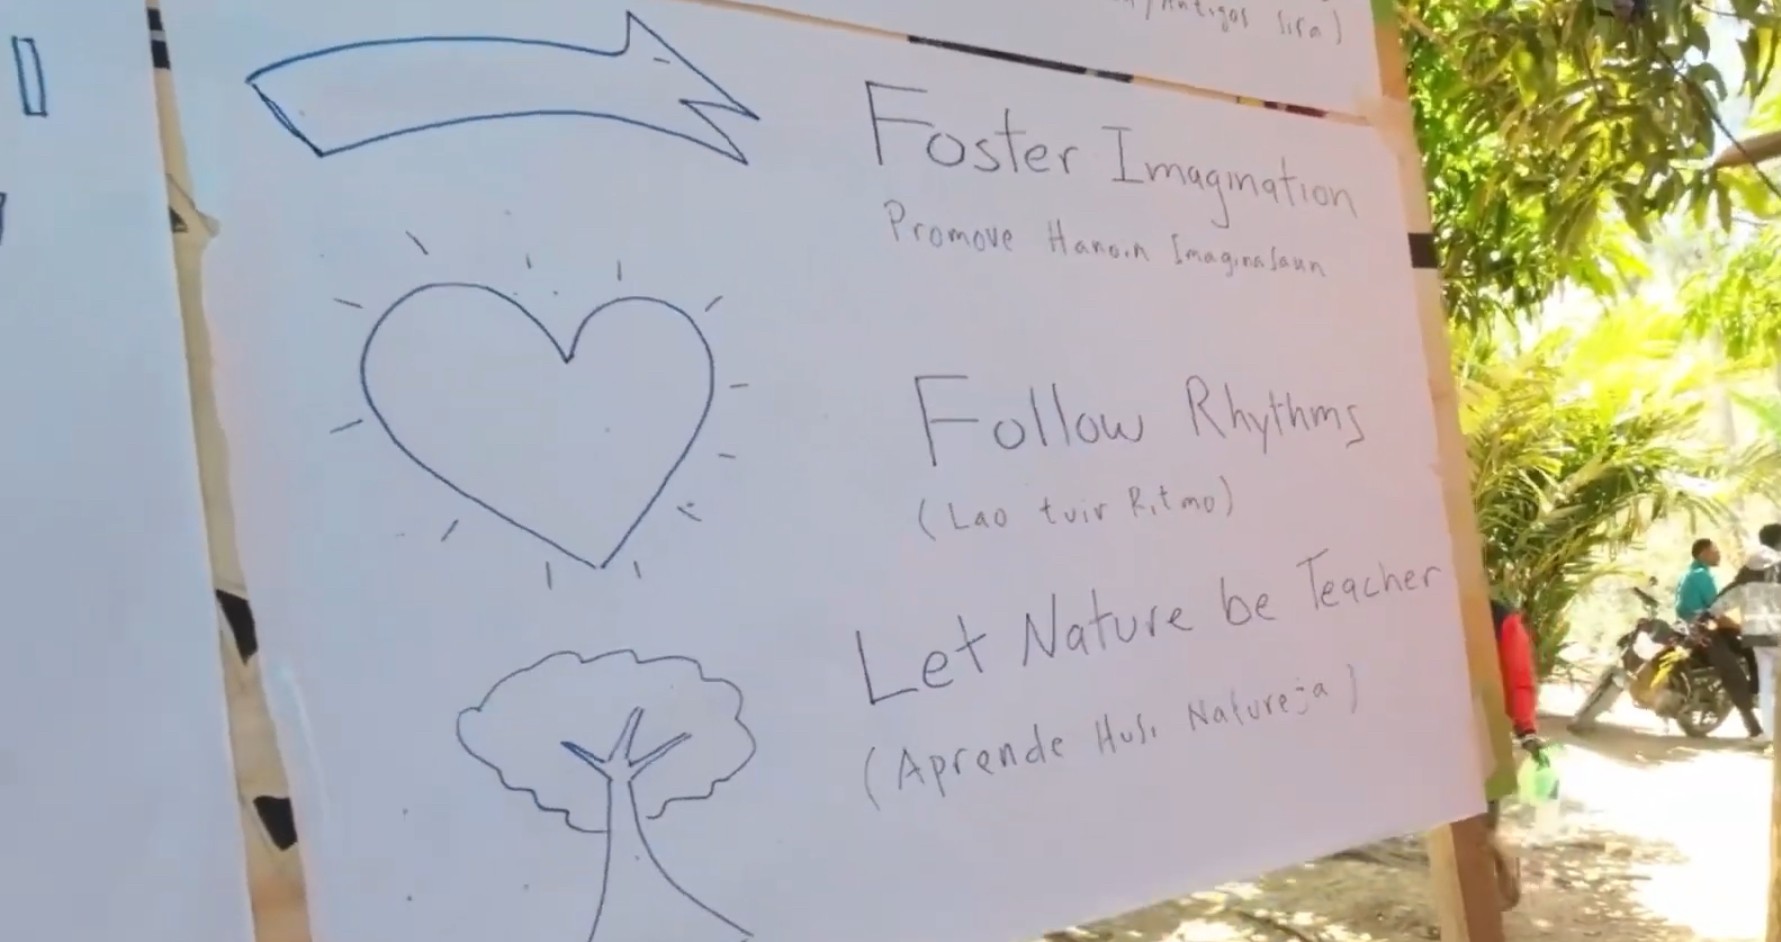 Antigos sira)
Foster Imagination
Promove Hanoin Imaginasaun
Follow Rhythms
(Lao tuir Ritmo)
Let Nature be Teacher
(Aprende Husi Natureja)